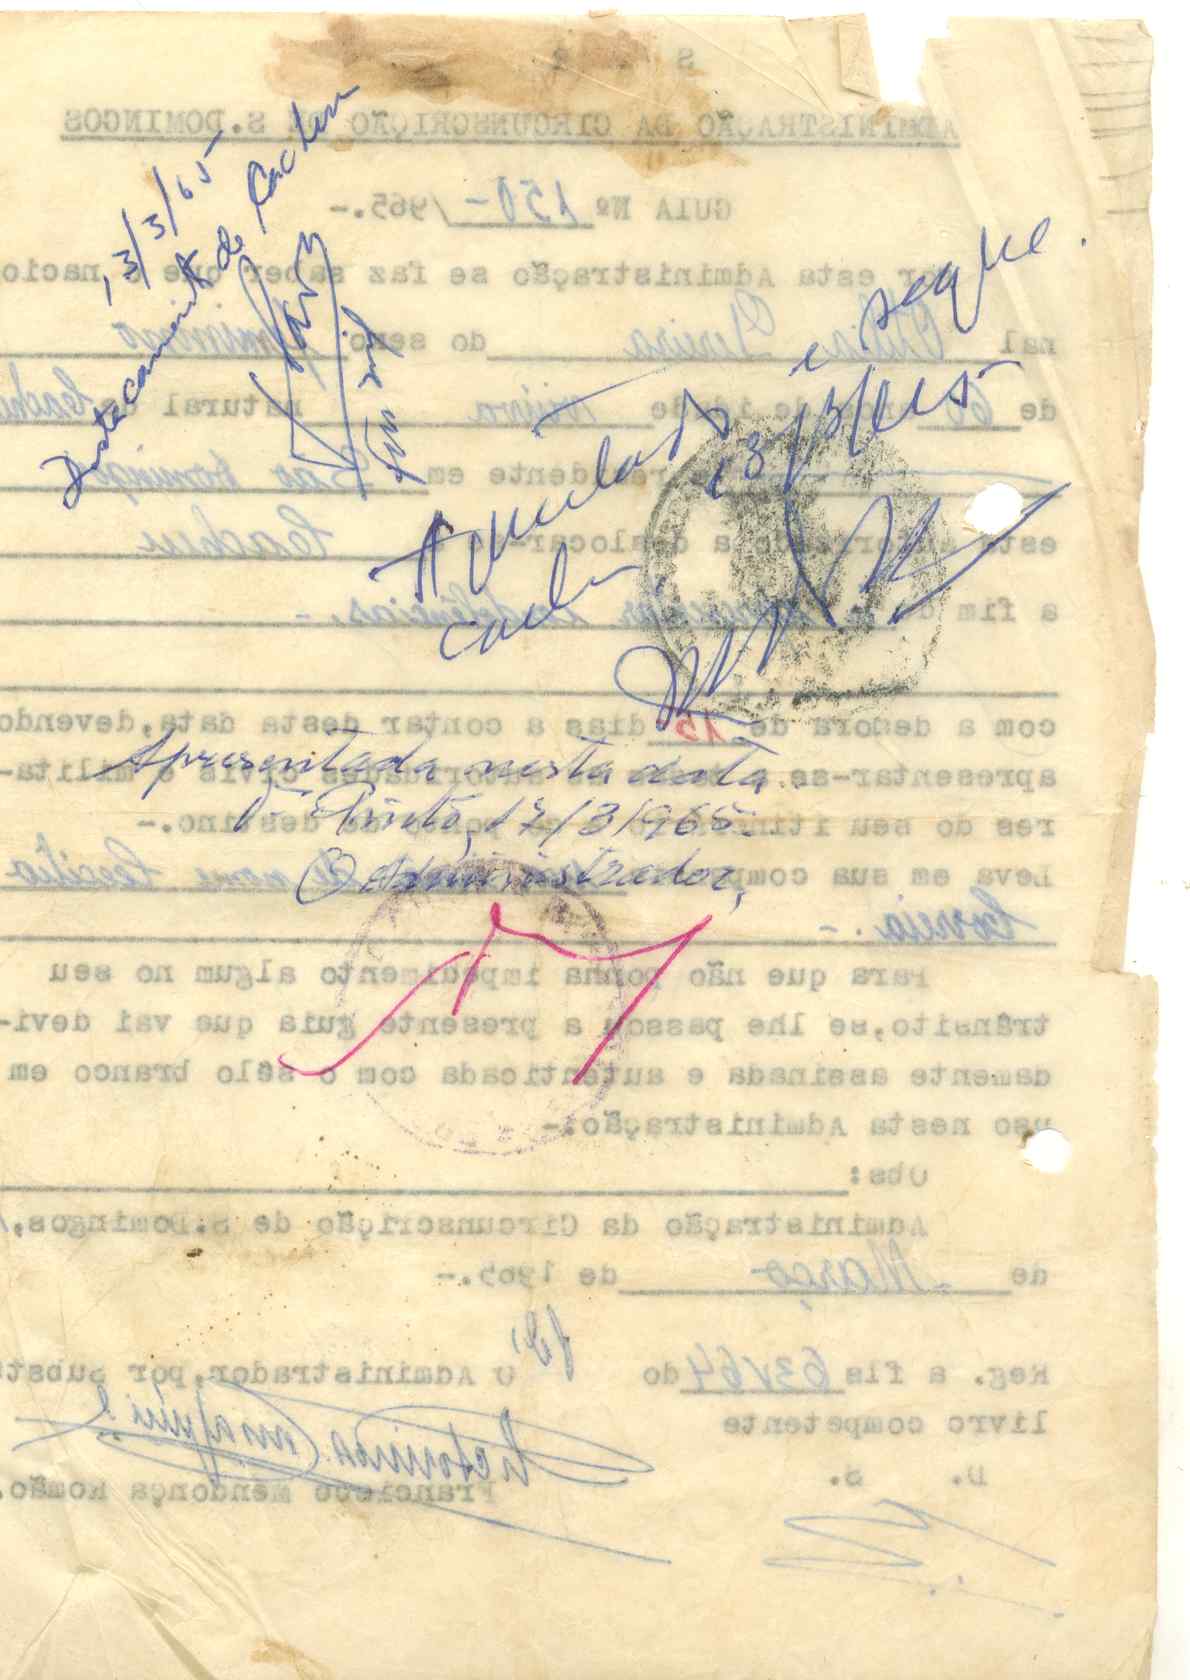 13/3/65
Destacamento de Cacheu
Apresentada e segue.
Cacheu, 13/3/965
Apresentada nesta data.
17/3/1965
O Administrador,
ADMINISTRAÇÃO DA CIRCUNSCRIÇÃO DE S.DOMINGOS
GUIA Nº 150-/965.-
por esta Administração se faz saber que o nacio
nal Pereira do sexo feminino
de 60 anos de idade natural de Cacheu
residente em São Domingos
está autorizado a deslocar-se a Cacheu
a fim de
com a demora de 15 dias a contar desta data,devendo
apresentar-se a todas as autoridades civis e milita-
res do seu itinerário e ao posto de destino.-
Leva em sua companhia de nome Cecilia
Correia.-
Para que não ponha impedimento algum no seu
trânsito,se lhe passou a presente guia que vai devi-
damente assinada e autenticada com o sêlo branco em
uso nesta Administração.-
Obs:
Administração da Circunscrição de S.Domingos,
de -Março- de 1965.-
Reg. a fls 63v64 do
O Administrador,por Subst
livro competente
D. S.
Francisco Mendonça Romão.